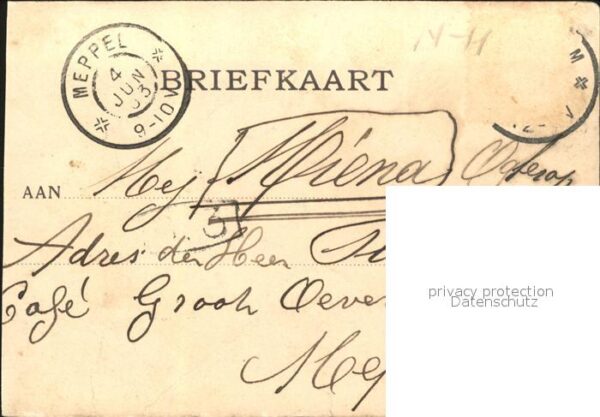 N-H
MEPPEL
4 JUN 03
9-10V
BRIEFKAART
M
12- V
AAN Mej Miena
5
Adres den Heer
Café Grooh Oever
Mep
privacy protection
Datenschutz